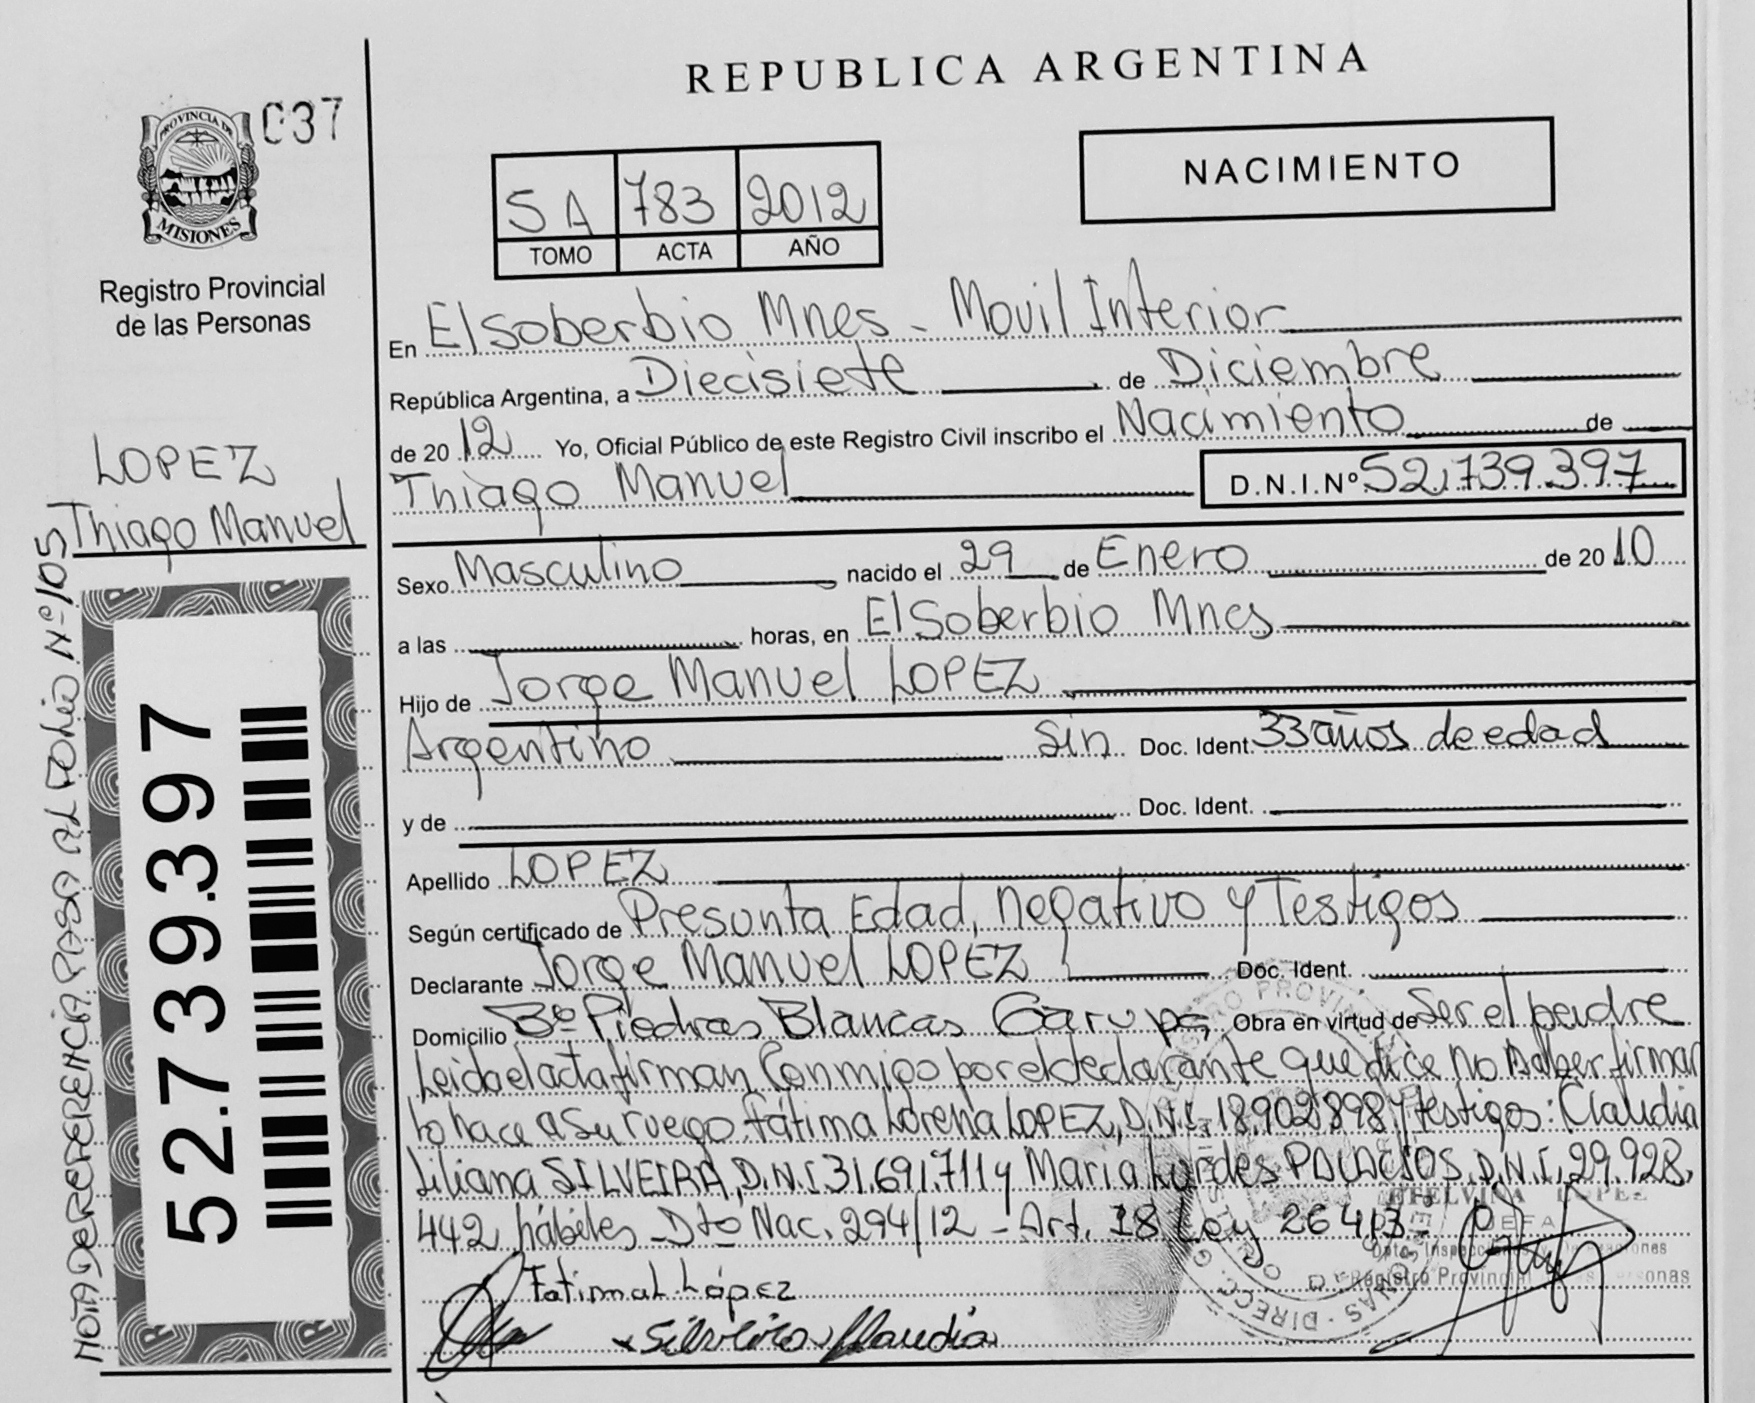 REPUBLICA ARGENTINA
037
PROVINCIA DE
MISIONES
Registro Provincial
de las Personas
NACIMIENTO
5A 783 2012
TOMO ACTA AÑO
En El Soberbio Mnes - Movil Interior
República Argentina, a Diecisiete de Diciembre
de 20 12 Yo, Oficial Público de este Registro Civil inscribo el Nacimiento de
Thiago Manuel D.N.I.Nº 52.739.397
LOPEZ
Thiago Manuel
Sexo Masculino nacido el 29 de Enero de 20 10
a las horas, en El Soberbio Mnes
Hijo de Jorge Manuel LOPEZ
Argentino Sin Doc. Ident. 33 años de edad
y de Doc. Ident.
Apellido LOPEZ
Según certificado de Presunta Edad, negativo y Testigos
Declarante Jorge Manuel LOPEZ Doc. Ident.
Domicilio Bº Piedras Blancas Garupa Obra en virtud de Ser el padre
Leida el acta firman Conmigo por el declarante que dice no saber firmar
lo hace a su ruego Fátima Lorena LOPEZ, D.N.I. 18.902.898 y testigos: Claudia
Liliana SILVEIRA, D.N.I 31.691.711 y Maria Lurdes PALACIOS, D.N.I. 29.928.
442 hábiles - Dto Nac. 294/12 - Art. 18 Ley 26413-
Fatima L López
Silveira Claudia
LOPEZ
JEFA
Registro Provincial
52.739.397
NOTA DE REFERENCIA PASA AL FOLIO Nº 105